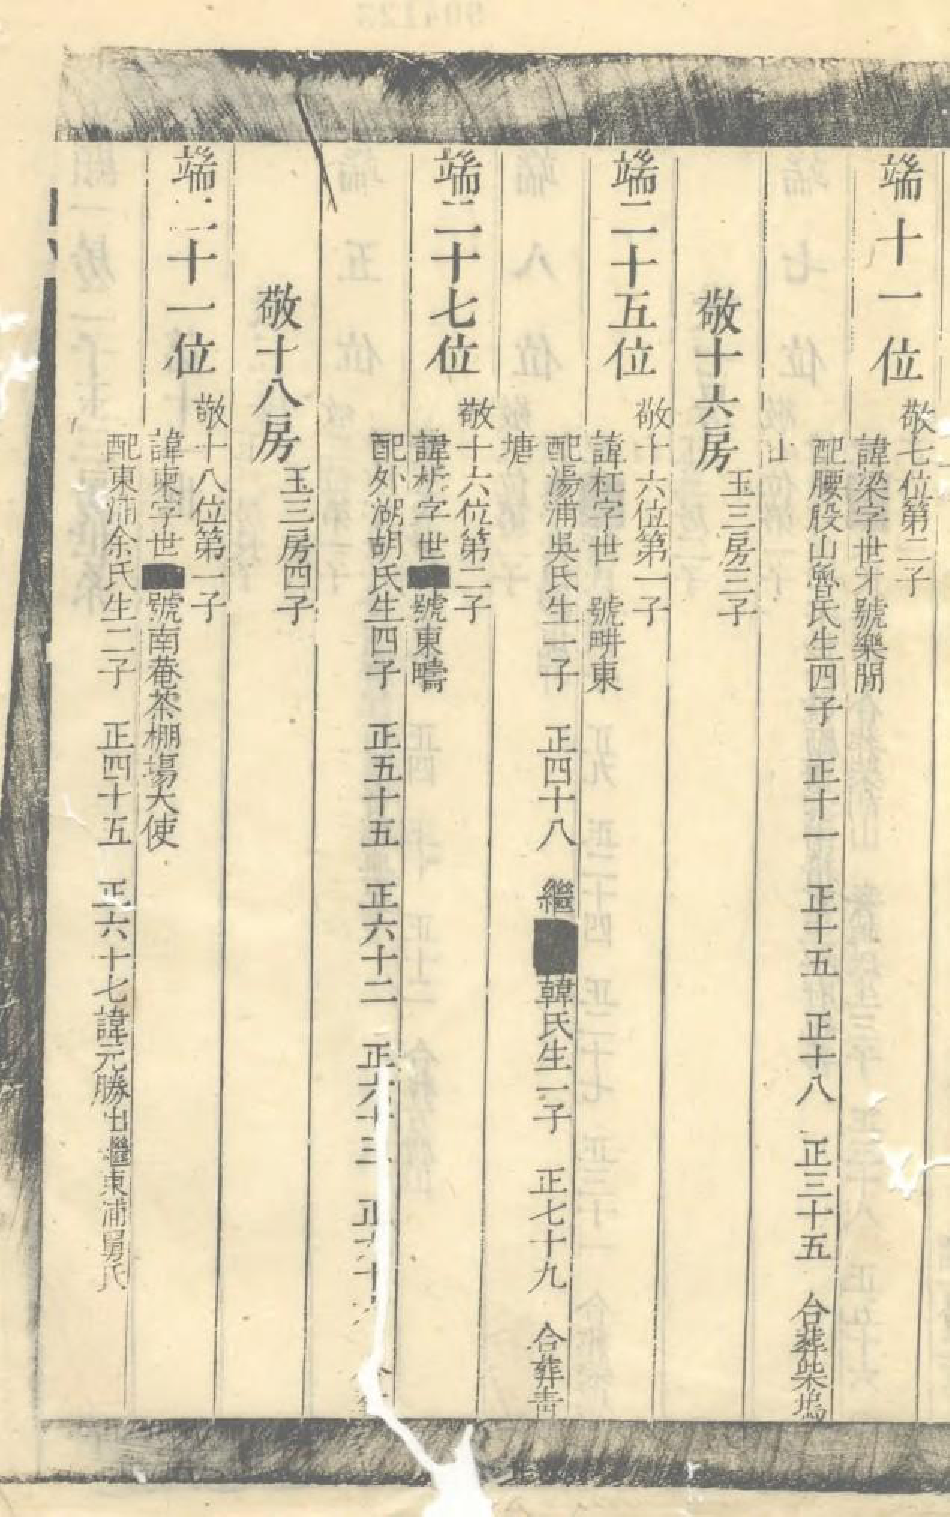 端十一位
敬七位第二子
諱梁字世才號樂閒
配腰股山魯氏生四子 正十一 正十五 正十八 正三十五 合葬柴塢
山
敬十六房
玉三房三子
端二十五位
敬十六位第一子
諱杠字世 號畊東
配湯浦吳氏生一子 正四十八 繼 韓氏生一子 正七十九 合葬青
塘
端二十七位
敬十六位第二子
諱 字世 號東疇
配外湖胡氏生四子 正五十五 正六十二 正六十三
敬十八房
玉三房四子
端 十一位
敬十八位第一子
諱 字世 號南菴茶棚場大使
配東浦余氏生二子 正四十五 正六十七諱元勝出繼東浦舅氏